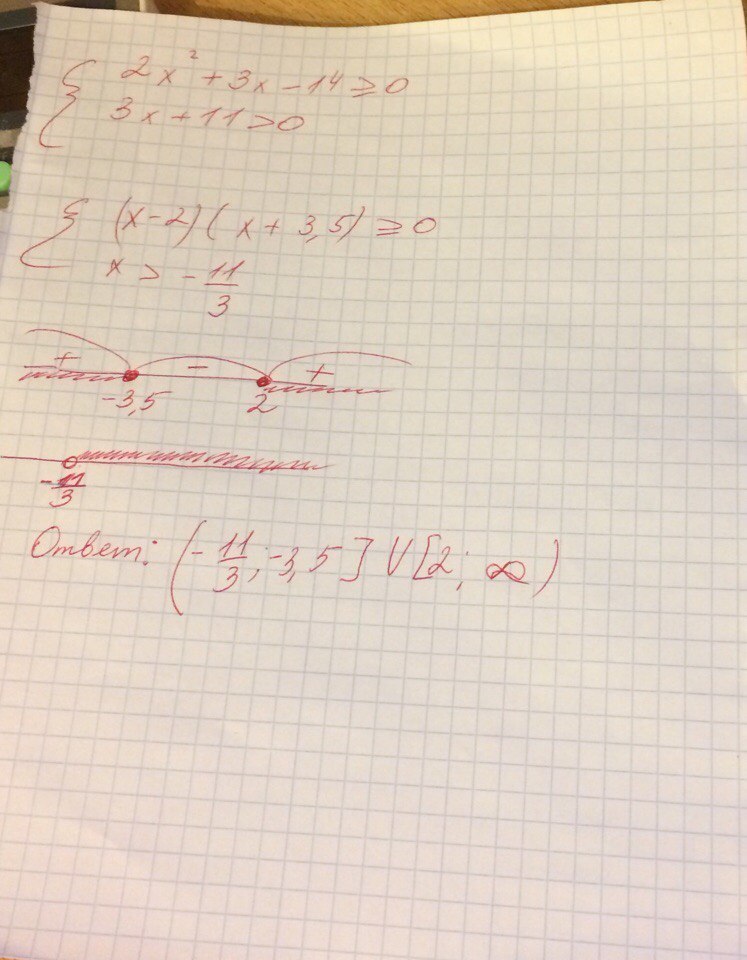 { 2x² + 3x - 14 ≥ 0
3x + 11 > 0
{ (x - 2)(x + 3,5) ≥ 0
x > - 11/3
+ - +
-3,5 2
- 11/3
Ответ: (- 11/3; -3,5] U [2; ∞)